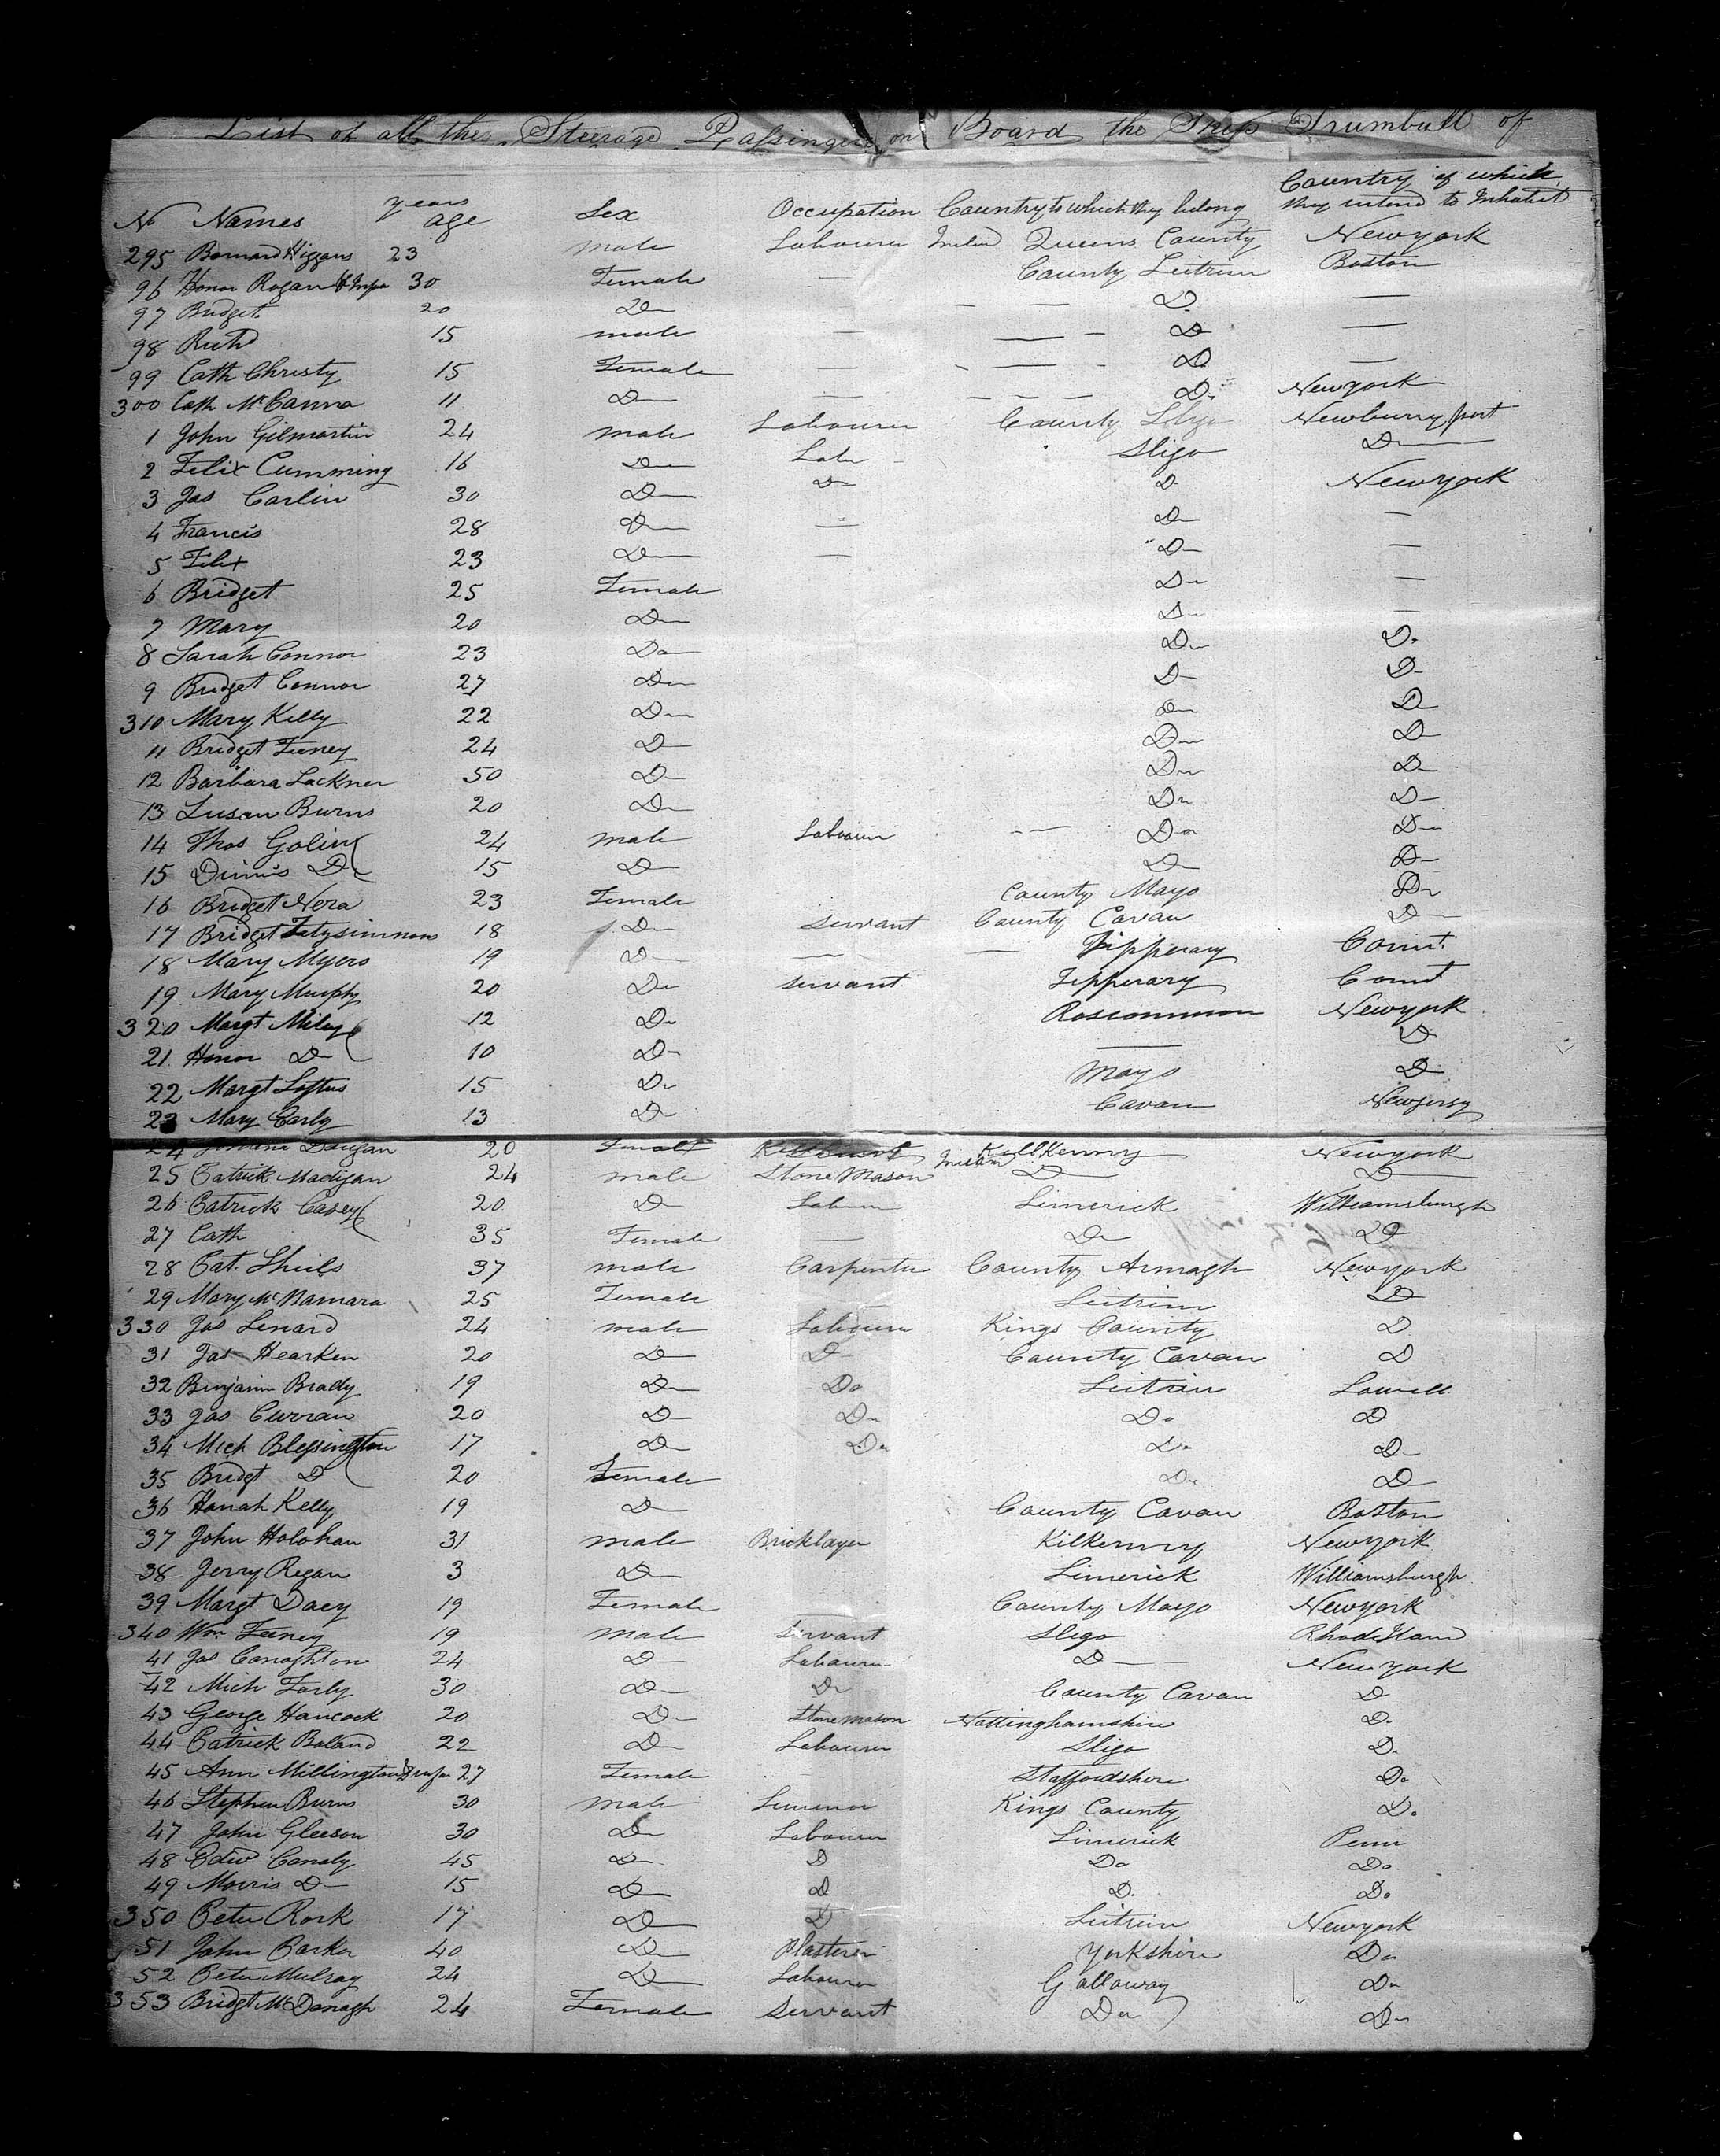 List of all the Steerage Passingers on Board the Ship Trumbull of
No Names years age Sex Occupation Country to which they belong Country of which they intend to Inhabit
295 Barnard Higgans 23 male Labourer Ireland Queens County Newyork
96 Honor Rogan & Infa 30 Female — County Leitrim Boston
97 Bridget 20 Do — — Do —
98 Richd 15 male — — - Do —
99 Cath Christy 15 Female — - — - Do —
300 Cath McCanna 11 Do — — — — Do Newyork
1 John Gilmartin 24 male Labourer County Sligo Newburry port
2 Felix Cumming 16 Do Labr Sligo Do
3 Jas Carlin 30 Do Do Do Newyork
4 Francis 28 Do — Do —
5 Felix 23 Do — Do —
6 Bridget 25 Female Do —
7 Mary 20 Do Do —
8 Sarah Connor 23 Do Do Do
9 Bridget Connor 27 Do Do Do
310 Mary Kelly 22 Do Do Do
11 Bridget Feeney 24 Do Do Do
12 Barbara Lackner 50 Do Do Do
13 Susan Burns 20 Do Do Do
14 Thos Golin 24 male Labourer — Do Do
15 Dinnis Do 15 Do Do Do
16 Bridget Nera 23 Female County Mayo Do
17 Bridget Fitzsimmons 18 Do servant County Cavan Do
18 Mary Myers 19 Do — — Tipperary Connt.
19 Mary Murphy 20 Do servant Tipperary Connt
320 Margt Miley 12 Do Roscommon Newyork
21 Honor Do 10 Do — Do
22 Margt Loftus 15 Do Mayo Do
23 Mary Early 13 Do Cavan Newjersy
24 Dougan 20 Female Killkenny Newyork
25 Patrick Madigan 24 male Stone Mason Ireland Do Do
26 Patrick Casey 20 Do Labour Limerick Williamsburgh
27 Cath 35 Female — Do Do
28 Pat. Shiels 37 male Carpenter County Armagh Newyork
29 Mary McNamara 25 Female Leitrim Do
330 Jas Lenard 24 male Labourer Kings County Do
31 Jas Hearken 20 Do Do County Cavan Do
32 Benjamin Brady 19 Do Do Leitrim Lowell
33 Jas Curran 20 Do Do Do Do
34 Mich Blessington 17 Do Do Do Do
35 Bridgt Do 20 Female Do Do
36 Hanah Kelly 19 Do County Cavan Boston
37 John Holohan 31 male Bricklayer Kilkenny Newyork
38 Jerry Regan 3 Do Limerick Williamsburgh
39 Margt Dacy 19 Female County Mayo Newyork
340 Wm Feeney 19 male Servant Sligo Rhode Iland
41 Jas Conaghton 24 Do Labourer Do New york
42 Mich Farly 30 Do Do County Cavan Do
43 George Hancock 20 Do Stone mason Nottinghamshire Do
44 Patrick Boland 22 Do Labourer Sligo Do
45 Ann Millington & infa 27 Female Staffordshire Do
46 Stephen Burns 30 male Kings County Do
47 John Gleeson 30 Do Labourer Limerick Penn
48 Edw Canaly 45 Do Do Do Do
49 Morris Do 15 Do Do Do Do
350 Peter Rork 17 Do Do Leitrim Newyork
51 John Parker 40 Do Plasterer Yorkshire Do
52 Peter Mulray 24 Do Labourer Galloway Do
353 Bridgt McDonagh 24 Female Servant Do Do